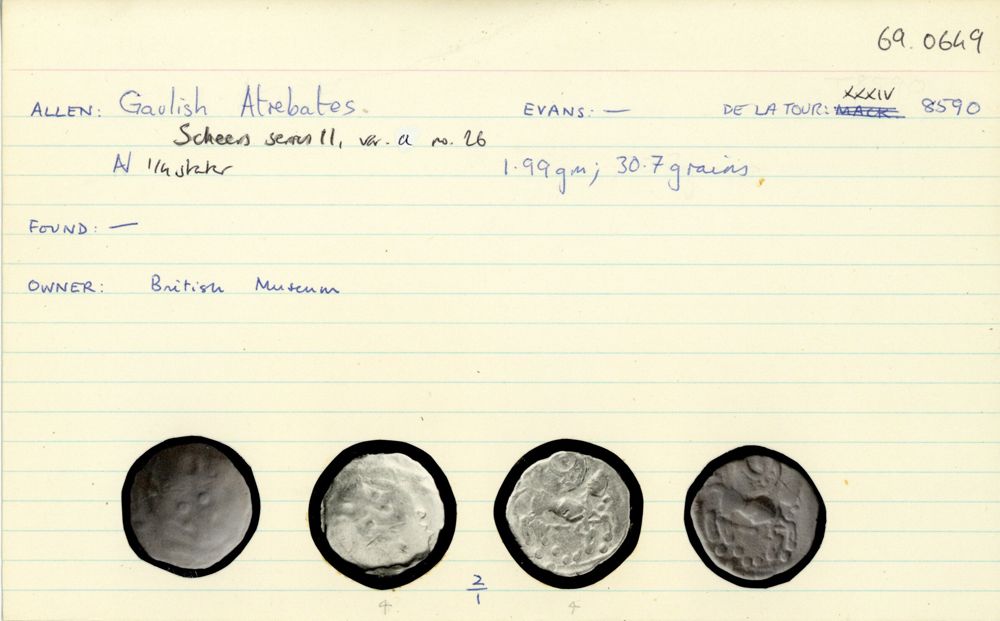 69.0649
ALLEN: Gaulish Atrebates. EVANS: — DE LA TOUR: XXXIV MACK. 8590
Scheers series II, var. a no. 26
AV 1/4 stater 1.99gm; 30.7 grains.
FOUND: —
OWNER: British Museum
2/1
4 4